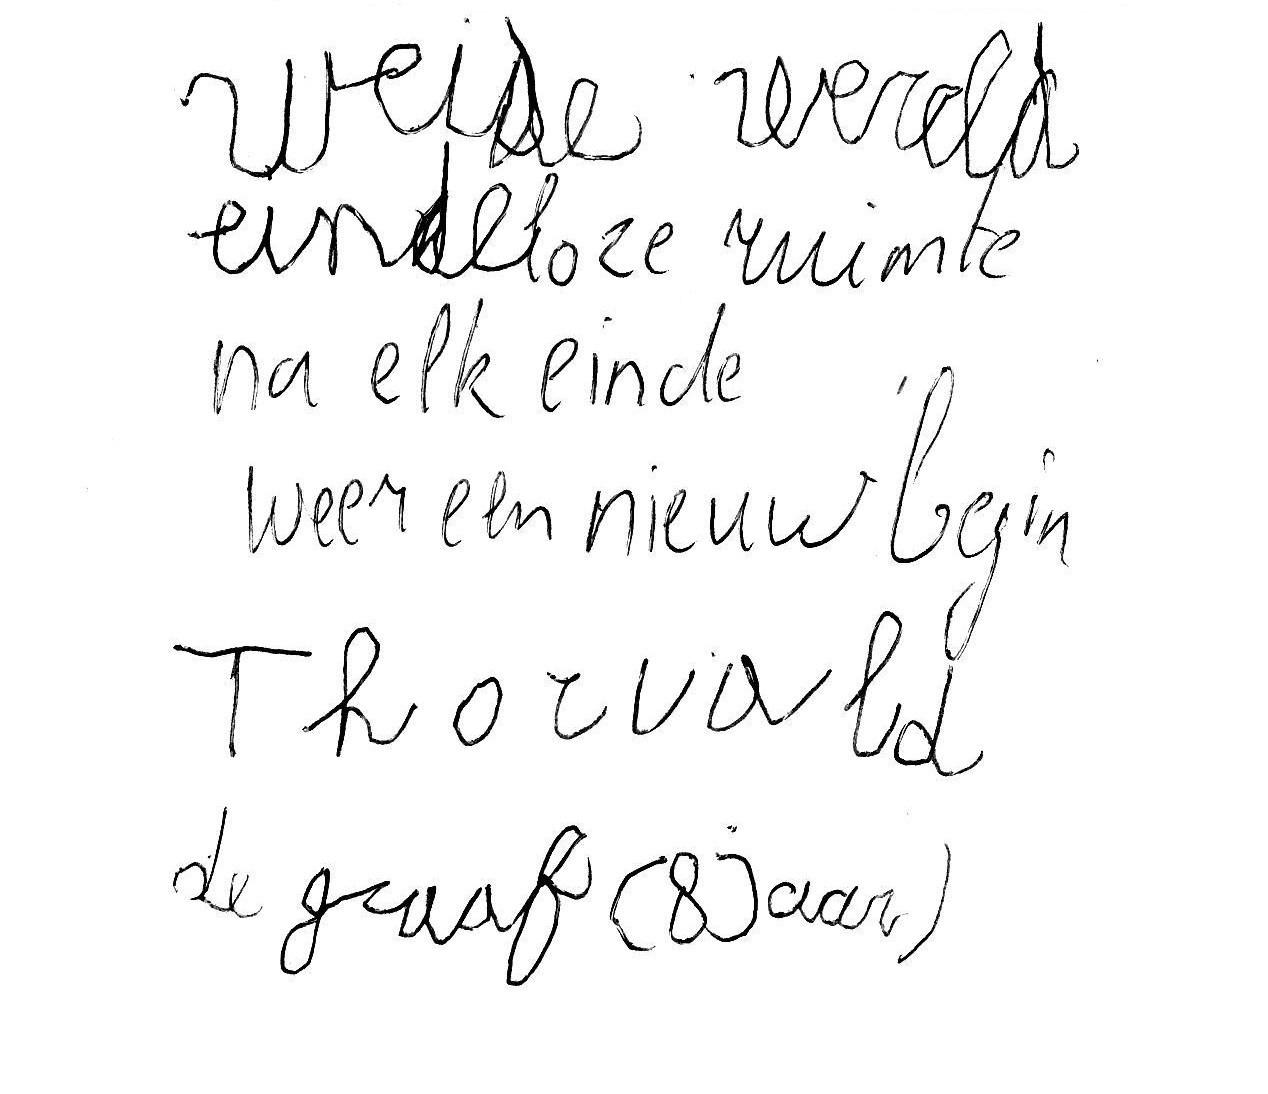 weidse wereld
eindeloze ruimte
na elk einde
weer een nieuw begin
Thorvald
de graaf (8 jaar)